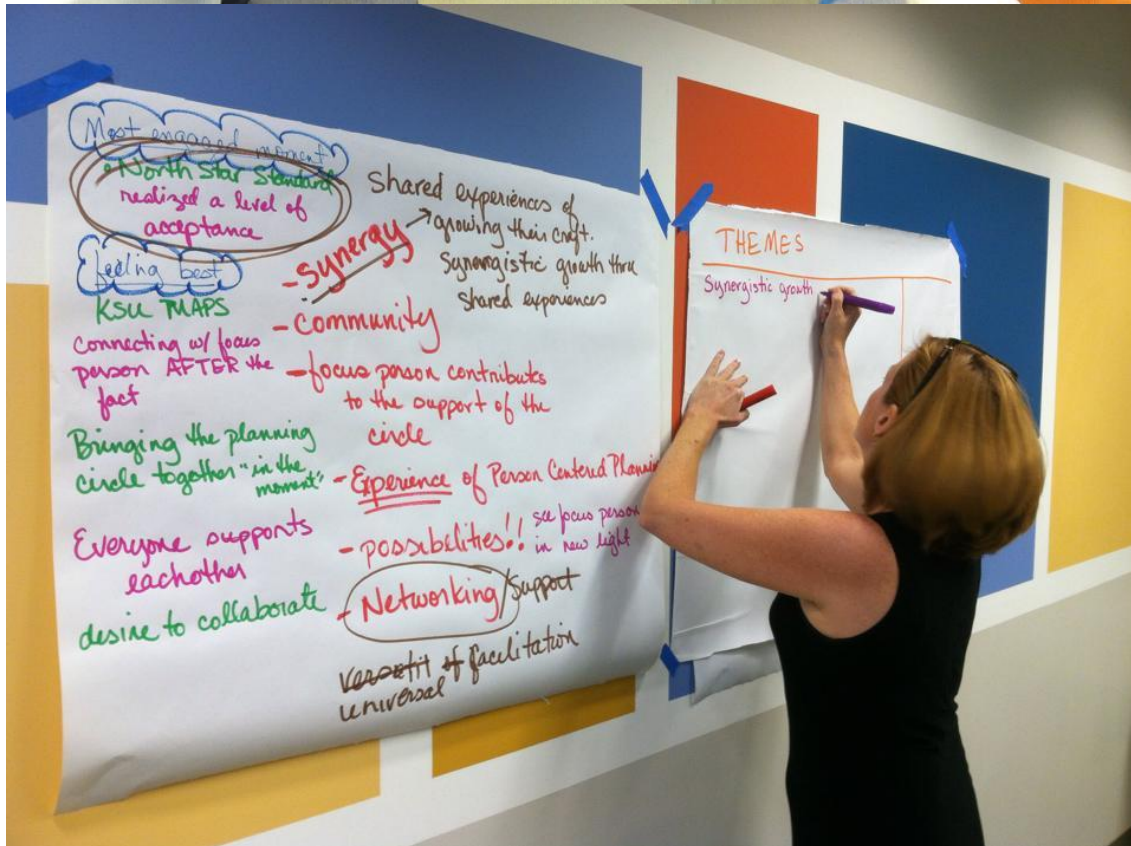 Most engaged moment
• North Star Standard
realized a level of
acceptance
feeling best
KSU MAPS
connecting w/ focus
person AFTER the
fact
Bringing the planning
circle together "in the
moment"
Everyone supports
eachother
desire to collaborate
- Synergy
Shared experiences of
growing their craft.
Synergistic growth thru
shared experiences
- Community
- focus person contributes
to the support of the
circle
- Experience of Person Centered Planning
- possibilities!! see focus person
in new light
- Networking/support
of facilitation
universal
THEMES
Synergistic growth